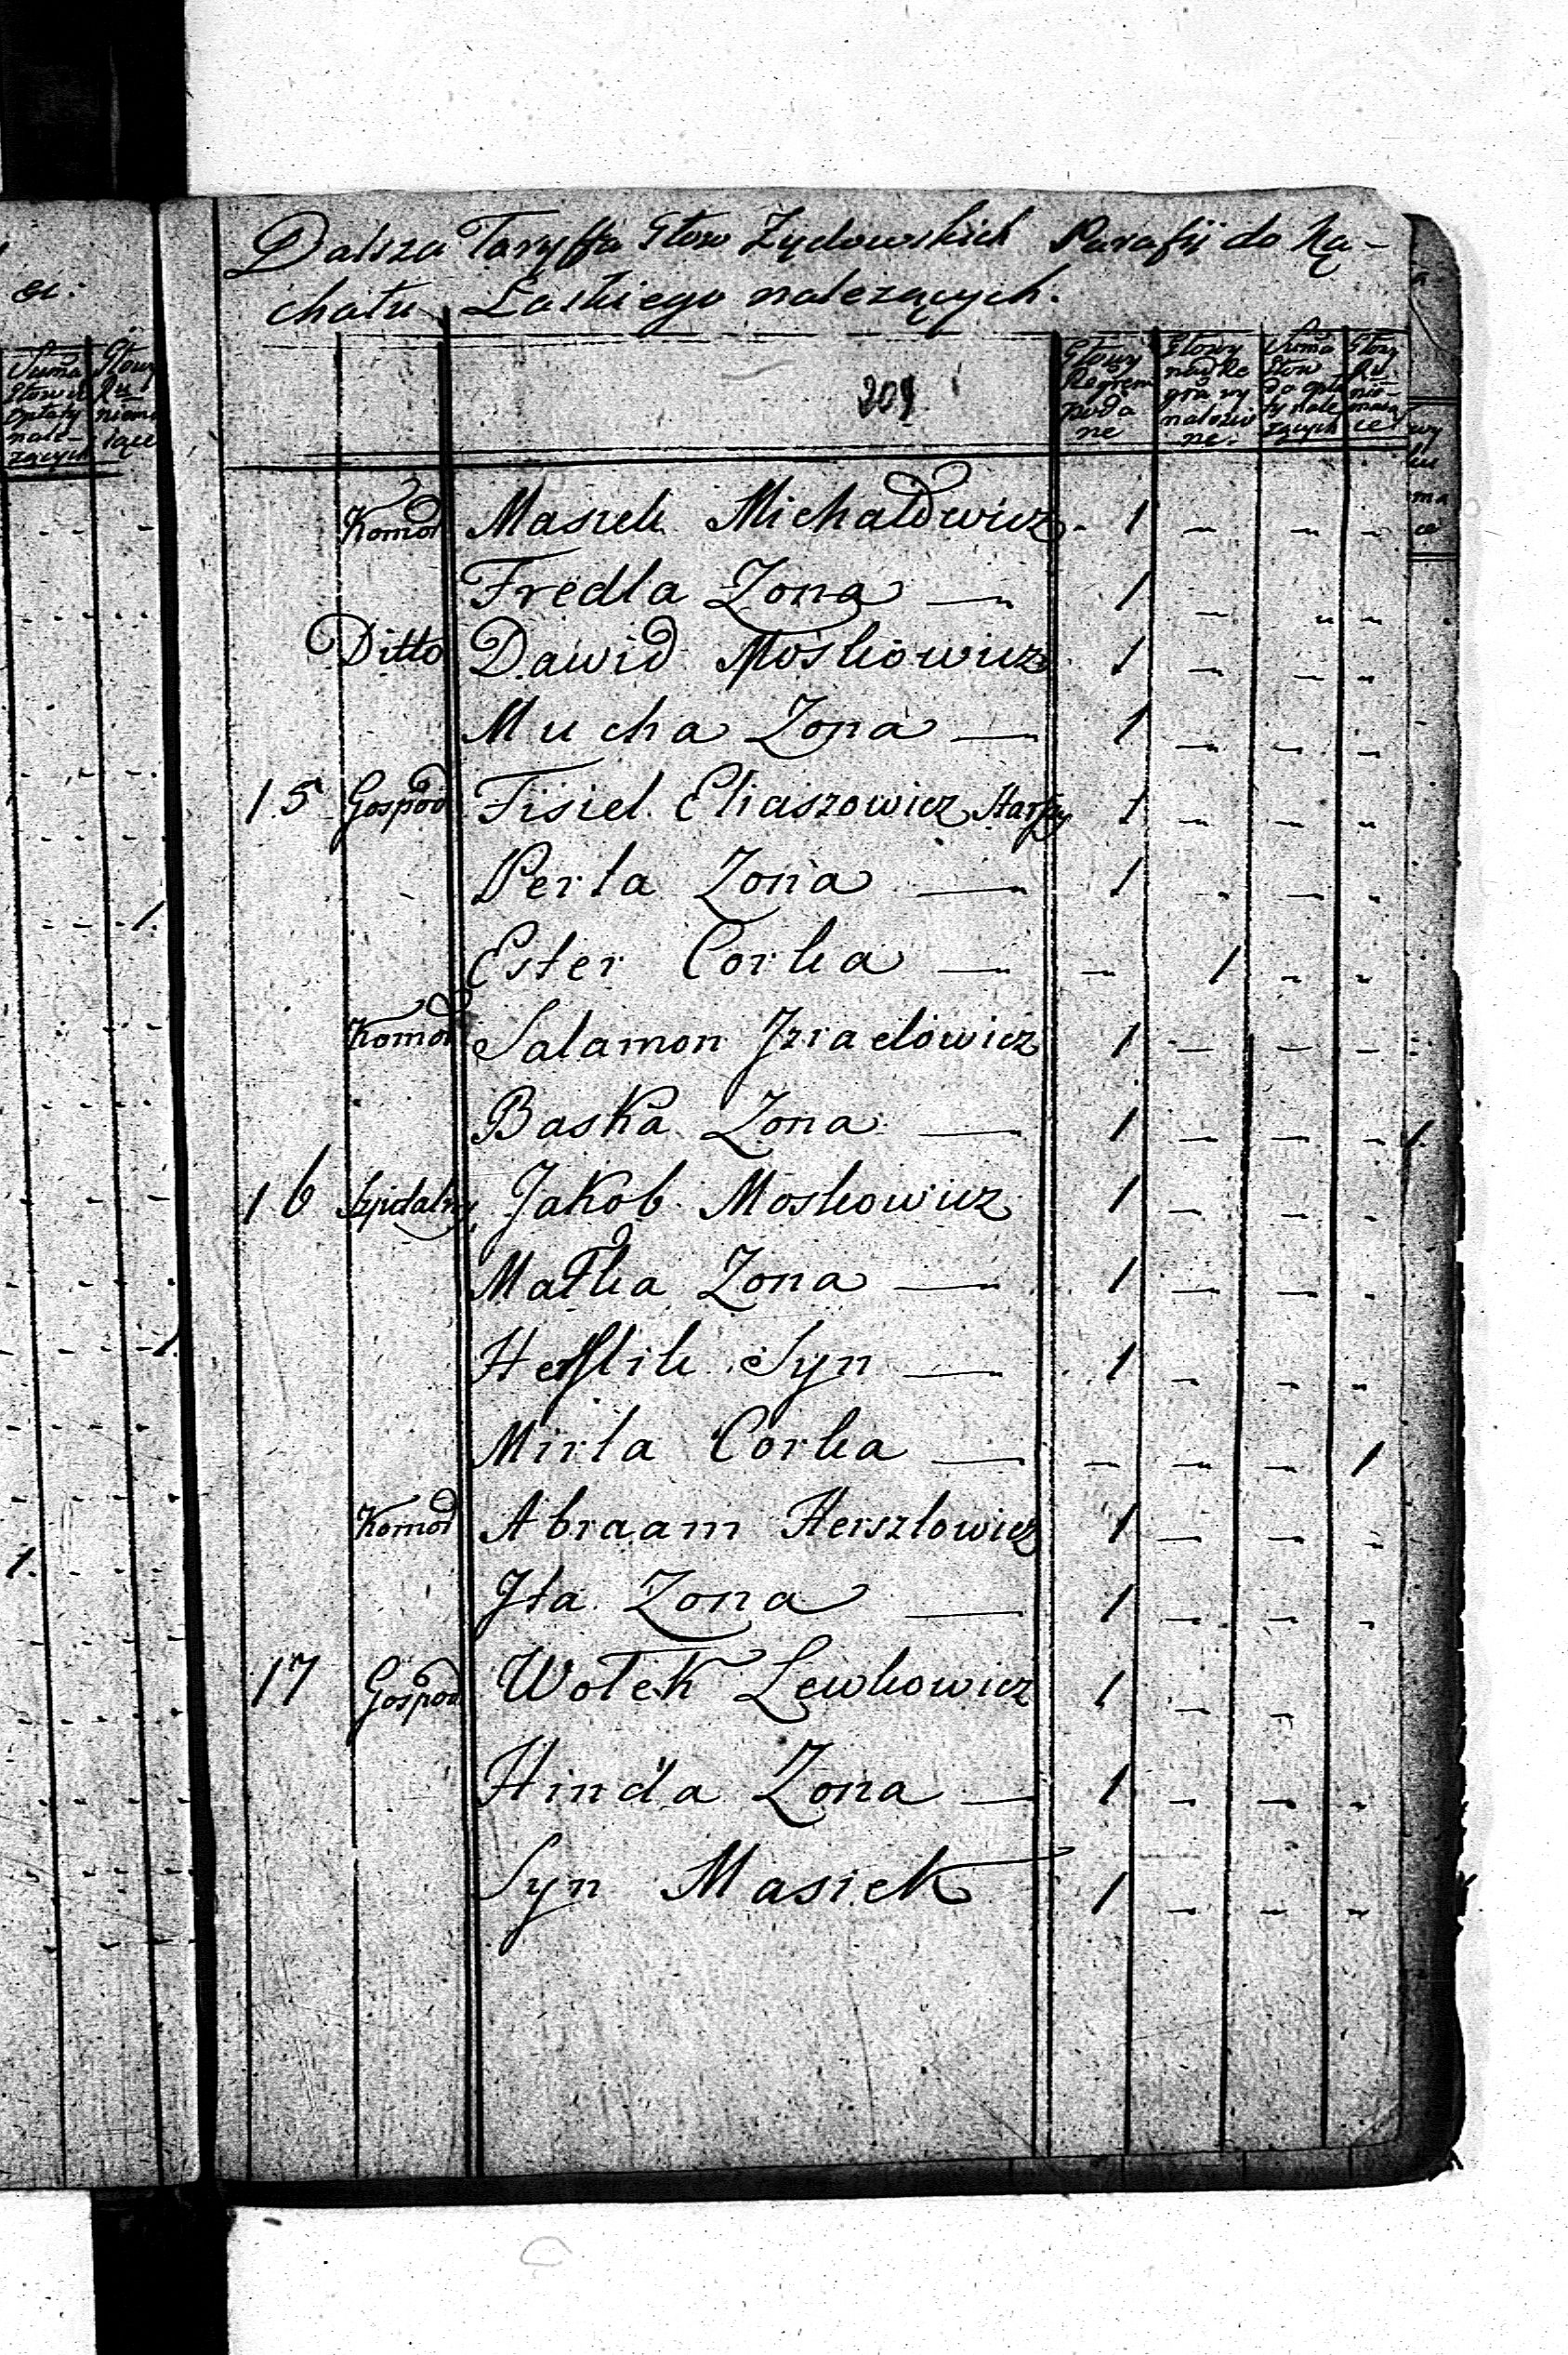 Dalsza Taryffa Głow Zydowskich Parafij do Ką-
chału Łaskiego nalezących.
209
Głowy Regrem podane
Głowy nalezione
Suma Głow do opłaty nalezących
Głowy Ru nie maiące
Suma Głow u Opłaty nalezących
Głowy Ru niema iące
Komor Masiek Michałowicz - 1 - - -
Fredla Zona — 1 - - -
Ditto Dawid Moskowicz 1 - - -
Mucha Zona — 1 - - -
15 Gospod Fisiel Eliaszowicz Starszy 1 - - -
Perla Zona — 1 - - -
Ester Corka — - 1 - -
Komor Salamon Jzraelowicz 1 - - -
Baska Zona — 1 - - -
16 Szpitalny Jakob Moskowicz 1 - - -
Małka Zona — 1 - - -
Herszlik Syn — 1 - - -
Mirla Corka — - - - 1
Komor Abraam Herszlowicz 1 - - -
Jta Zona — 1 - - -
17 Gospod Wolek Lewkowicz 1 - -
Hinda Zona — 1 - - -
Syn Masiek 1 - - -